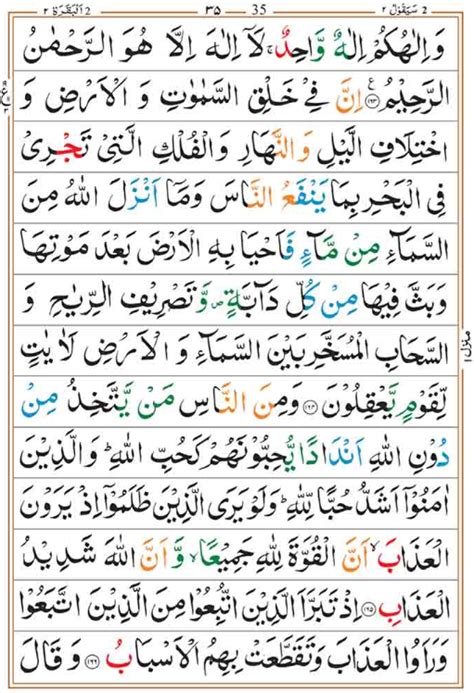 2 سَيَقُوْلُ ٢ 35 ٣٥ 2 اَلْبَقَرَة ٢
وَاِلٰهُكُمْ اِلٰهٌ وَّاحِدٌ ۚ لَآ اِلٰهَ اِلَّا هُوَ الرَّحْمٰنُ
الرَّحِيْمُ ﴿۱۶۳﴾ اِنَّ فِيْ خَلْقِ السَّمٰوٰتِ وَ الْاَرْضِ وَ
اخْتِلَافِ الَّيْلِ وَالنَّهَارِ وَ الْفُلْكِ الَّتِيْ تَجْرِيْ
فِي الْبَحْرِ بِمَا يَنْفَعُ النَّاسَ وَمَآ اَنْزَلَ اللهُ مِنَ
السَّمَآءِ مِنْ مَّآءٍ فَاَحْيَا بِهِ الْاَرْضَ بَعْدَ مَوْتِهَا
وَبَثَّ فِيْهَا مِنْ كُلِّ دَآبَّةٍ ۪ وَّتَصْرِيْفِ الرِّيٰحِ وَ
السَّحَابِ الْمُسَخَّرِ بَيْنَ السَّمَآءِ وَ الْاَرْضِ لَاٰيٰتٍ
لِّقَوْمٍ يَّعْقِلُوْنَ ﴿۱۶۴﴾ وَمِنَ النَّاسِ مَنْ يَّتَّخِذُ مِنْ
دُوْنِ اللهِ اَنْدَادًا يُّحِبُّوْنَهُمْ كَحُبِّ اللهِ ؕ وَالَّذِيْنَ
اٰمَنُوْٓا اَشَدُّ حُبًّا لِّلّٰهِ ؕ وَلَوْ يَرَى الَّذِيْنَ ظَلَمُوْٓا اِذْ يَرَوْنَ
الْعَذَابَ ۙ اَنَّ الْقُوَّةَ لِلّٰهِ جَمِيْعًا ۙ وَّ اَنَّ اللهَ شَدِيْدُ
الْعَذَابِ ﴿۱۶۵﴾ اِذْ تَبَرَّاَ الَّذِيْنَ اتُّبِعُوْا مِنَ الَّذِيْنَ اتَّبَعُوْا
وَرَاَوُا الْعَذَابَ وَتَقَطَّعَتْ بِهِمُ الْاَسْبَابُ ﴿۱۶۶﴾ وَ قَالَ
منزل ١